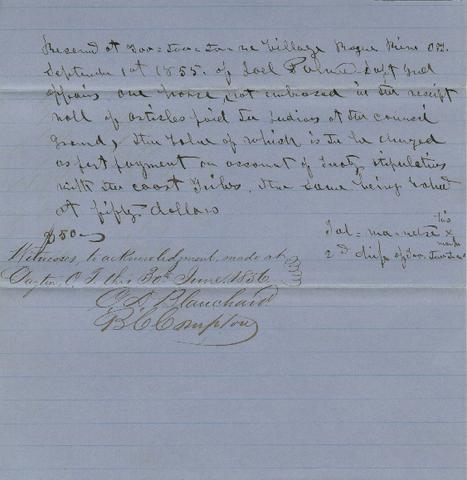 Received at Too-too-to-ne Village Rogue River O.T.
September 1st 1855. of Joel Palmer Supt Ind
affairs one horse, not embraced in the receipt
roll of articles paid the Indians at the council
ground, the value of which is to be charged
as part payment on account of treaty stipulations
with the coast Tribes, the same being valued
at fifty dollars
$50
his
x
mark
2d chief of Too-Too-to-ne
Witnesses, to acknowledgment, made at
Dayton, O.T. this 30th June, 1856
C D Blanchard
B C Compton